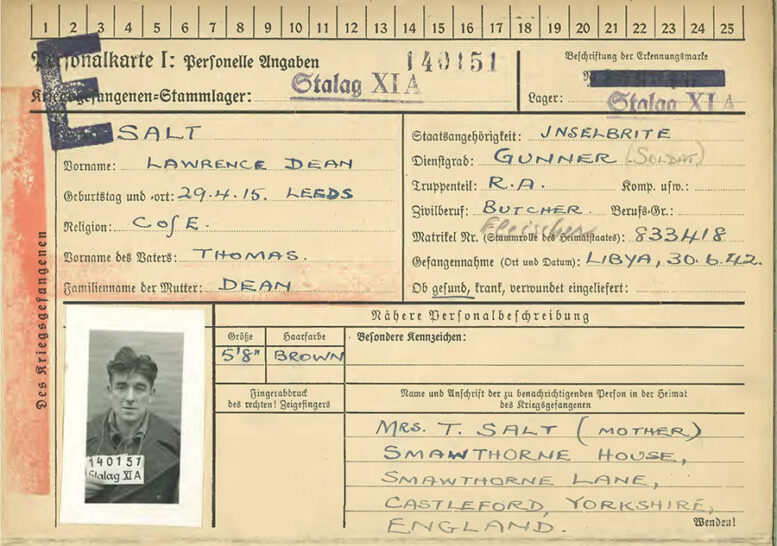 1 2 3 4 5 6 7 8 9 10 11 12 13 14 15 16 17 18 19 20 21 22 23 24 25
E
Personalkarte I: Personelle Angaben
140151
Kriegsgefangenen=Stammlager: Stalag XI A
Beschriftung der Erkennungsmarke
Lager: Stalag XI A
Des Kriegsgefangenen
SALT
Vorname: LAWRENCE DEAN
Geburtstag und -ort: 29.4.15. LEEDS
Religion: C of E.
Vorname des Vaters: THOMAS.
Familienname der Mutter: DEAN
Staatsangehörigkeit: INSELBRITE
Dienstgrad: GUNNER (SOLDAT)
Truppenteil: R.A. Komp. usw.:
Zivilberuf: BUTCHER. Berufs-Gr.:
Fleischer
Matrikel Nr. (Stammrolle des Heimatstaates): 833418
Gefangennahme (Ort und Datum): LIBYA, 30.6.42.
Ob gesund, krank, verwundet eingeliefert:
140151
Stalag XI A
Nähere Personalbeschreibung
Größe Haarfarbe
5'8" BROWN
Besondere Kennzeichen:
Fingerabdruck
des rechten! Zeigefingers
Name und Anschrift der zu benachrichtigenden Person in der Heimat
des Kriegsgefangenen
MRS. T. SALT (MOTHER)
SMAWTHORNE HOUSE,
SMAWTHORNE LANE,
CASTLEFORD, YORKSHIRE,
ENGLAND.
Wenden!